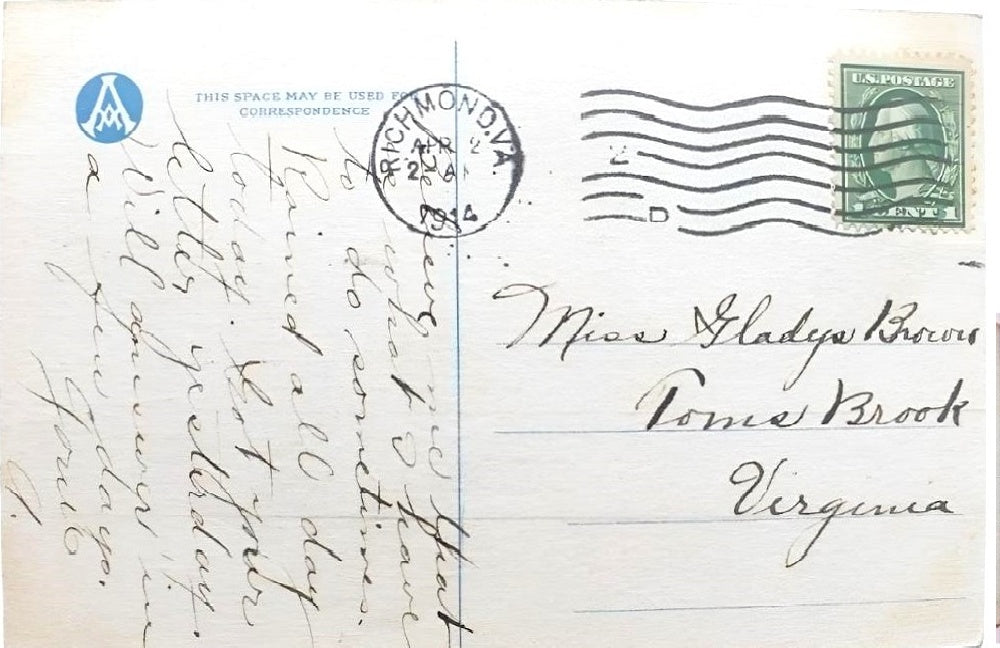 THIS SPACE MAY BE USED FOR
CORRESPONDENCE
RICHMOND, VA.
APR 2
2 AM
1914
U.S. POSTAGE
1 CENT 1
Believe me that
is what I have
to do sometimes.
Rained all day
today. Got your
letter yesterday.
Will answer in
a few days.
G.
Miss Gladys Brown
Toms Brook
Virginia